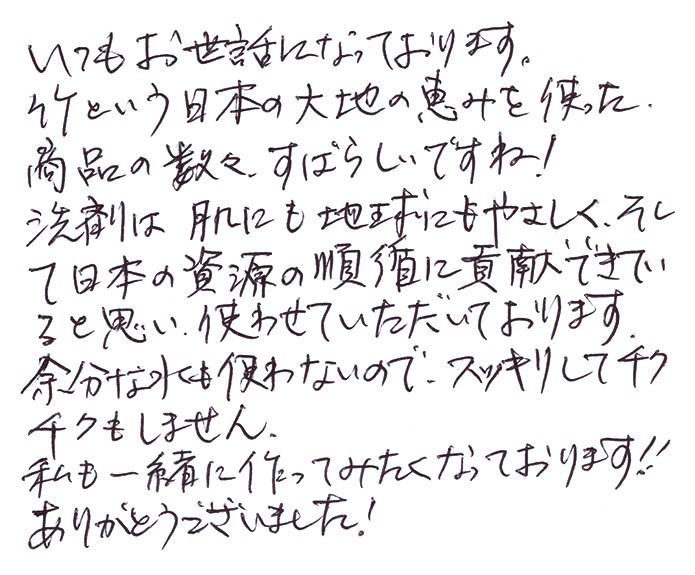 いつもお世話になっております。
竹という日本の大地の恵みを使った、
商品の数々、すばらしいですね!
洗剤は 肌にも地球にもやさしく、そし
て日本の資源の順循に貢献できてい
ると思い、使わせていただいております。
余分な水も使わないので、スッキリしてチク
チクもしません。
私も一緒に作ってみたくなっております!!
ありがとうございました!